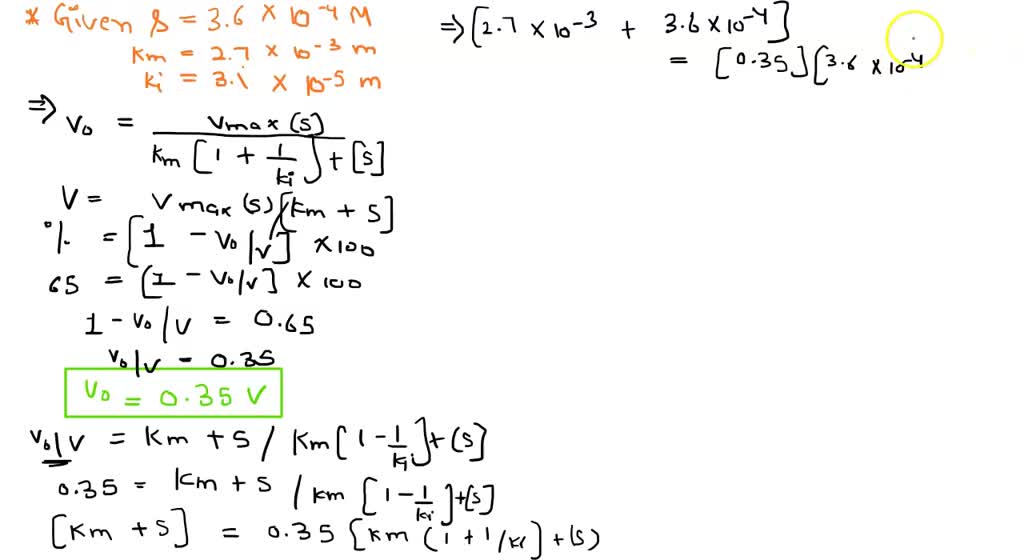 * Given S = 3.6 × 10⁻⁴ M
Km = 2.7 × 10⁻³ m
Ki = 3.1 × 10⁻⁵ m
⇒ V₀ = Vmax (S) / Km [1 + 1/Ki] + [S]
V = Vmax (S) / [Km + S]
% = [1 - V₀/V] × 100
65 = [1 - V₀/V] × 100
1 - V₀/V = 0.65
V₀/V = 0.35
V₀ = 0.35 V
V₀/V = Km + S / Km [1 - 1/Ki] + (S]
0.35 = Km + S / Km [1 - 1/Ki] + [S]
[Km + S] = 0.35 [Km (1 + 1/Ki] + (S)
⇒ [2.7 × 10⁻³ + 3.6 × 10⁻⁴]
= [0.35] [3.6 × 10⁻⁴